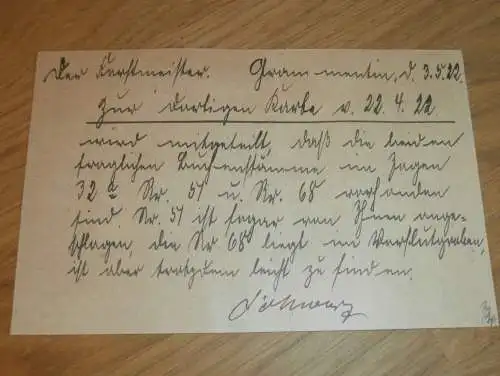 Der Forstmeister. Grammentin, d. 3.5.22.
Zur dortigen Karte v. 22.4.22
wird mitgeteilt, daß die beiden
fraglichen Buchenstämme im Jagen
32 a Nr. 57 u. Nr. 68 vorhanden
sind. Nr. 57 ist sogar von Ihnen ange-
schlagen, die Nr 68 liegt im Vorflutgraben,
ist aber trotzdem leicht zu finden.
Schwarz